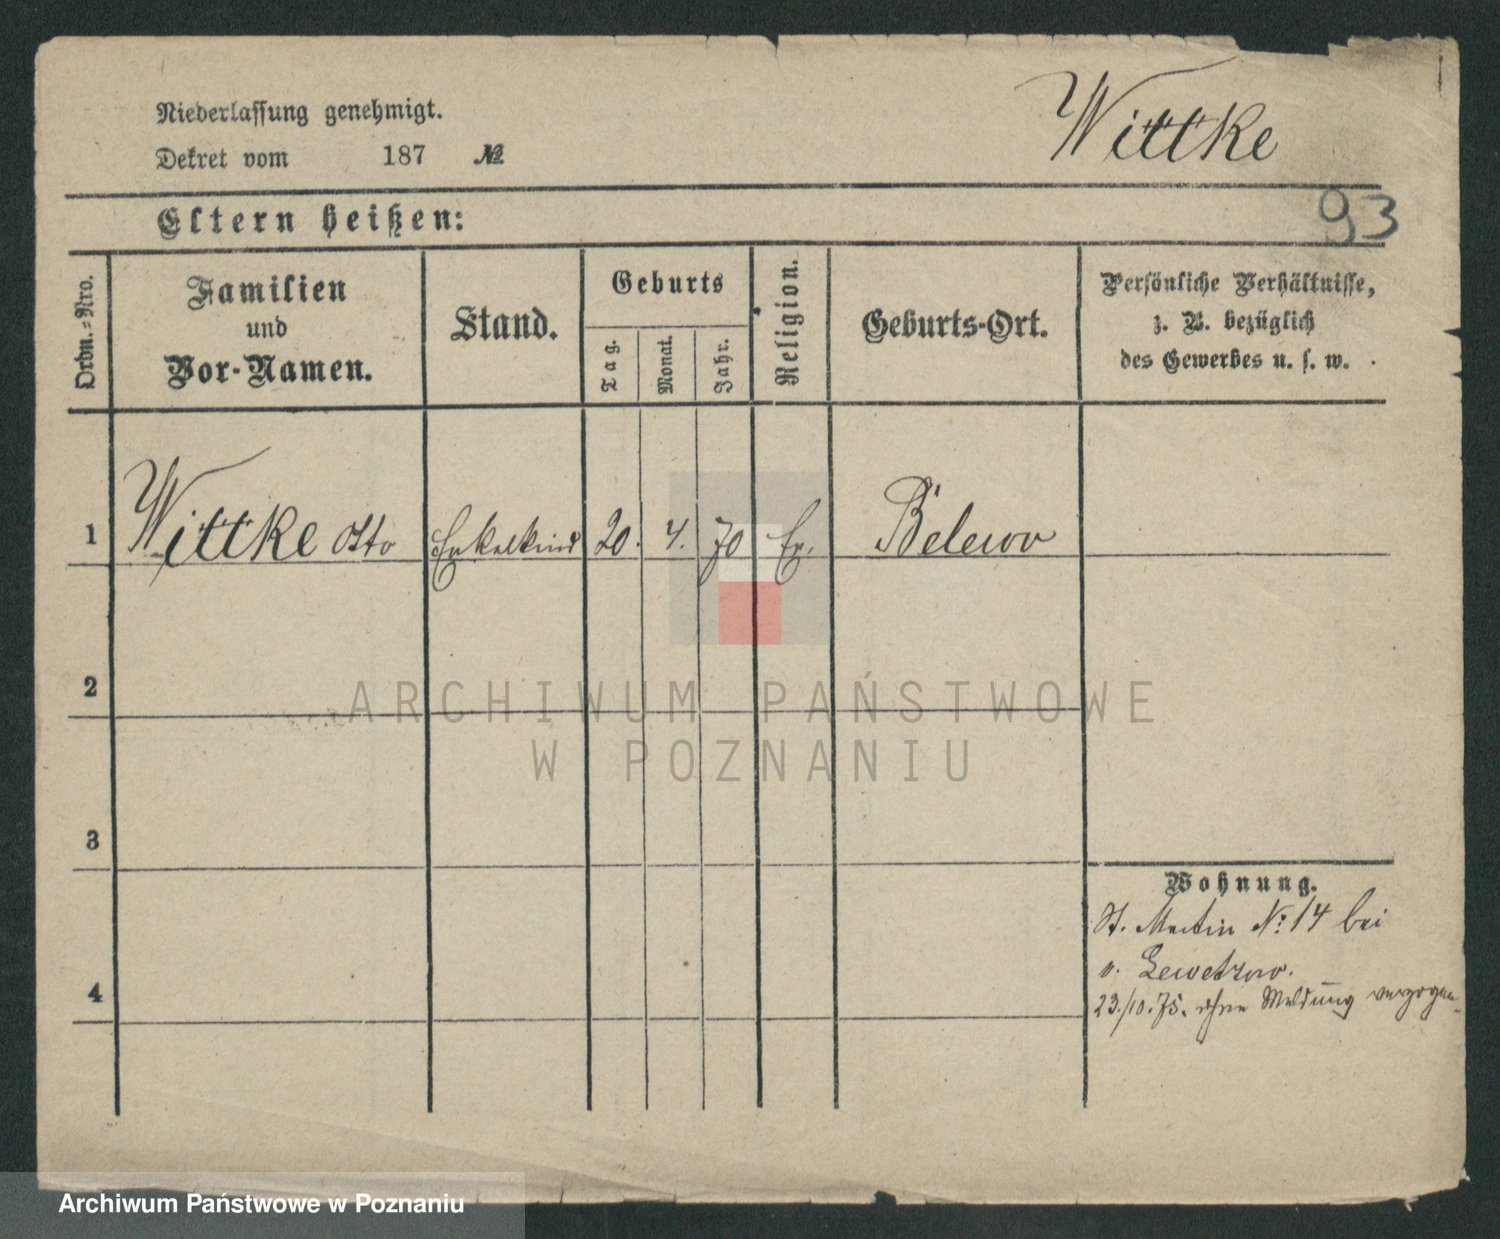 Niederlassung genehmigt.
Dekret vom 187 №
Wittke
93
Eltern heißen:
Ordn.-Nro.
Familien
und
Vor-Namen.
Stand.
Geburts
Tag.
Monat.
Jahr.
Religion.
Geburts-Ort.
Persönliche Verhältnisse,
z. B. bezüglich
des Gewerbes u. s. w.
1 Wittke Otto Enkelkind 20. 4. 70 Ev. Belewo
2
ARCHIWUM PAŃSTWOWE
W POZNANIU
3
Wohnung.
St. Martin №. 14 bei
v. Lewetzow.
4
23./10. 75. ohne Meldung verzogen
Archiwum Państwowe w Poznaniu